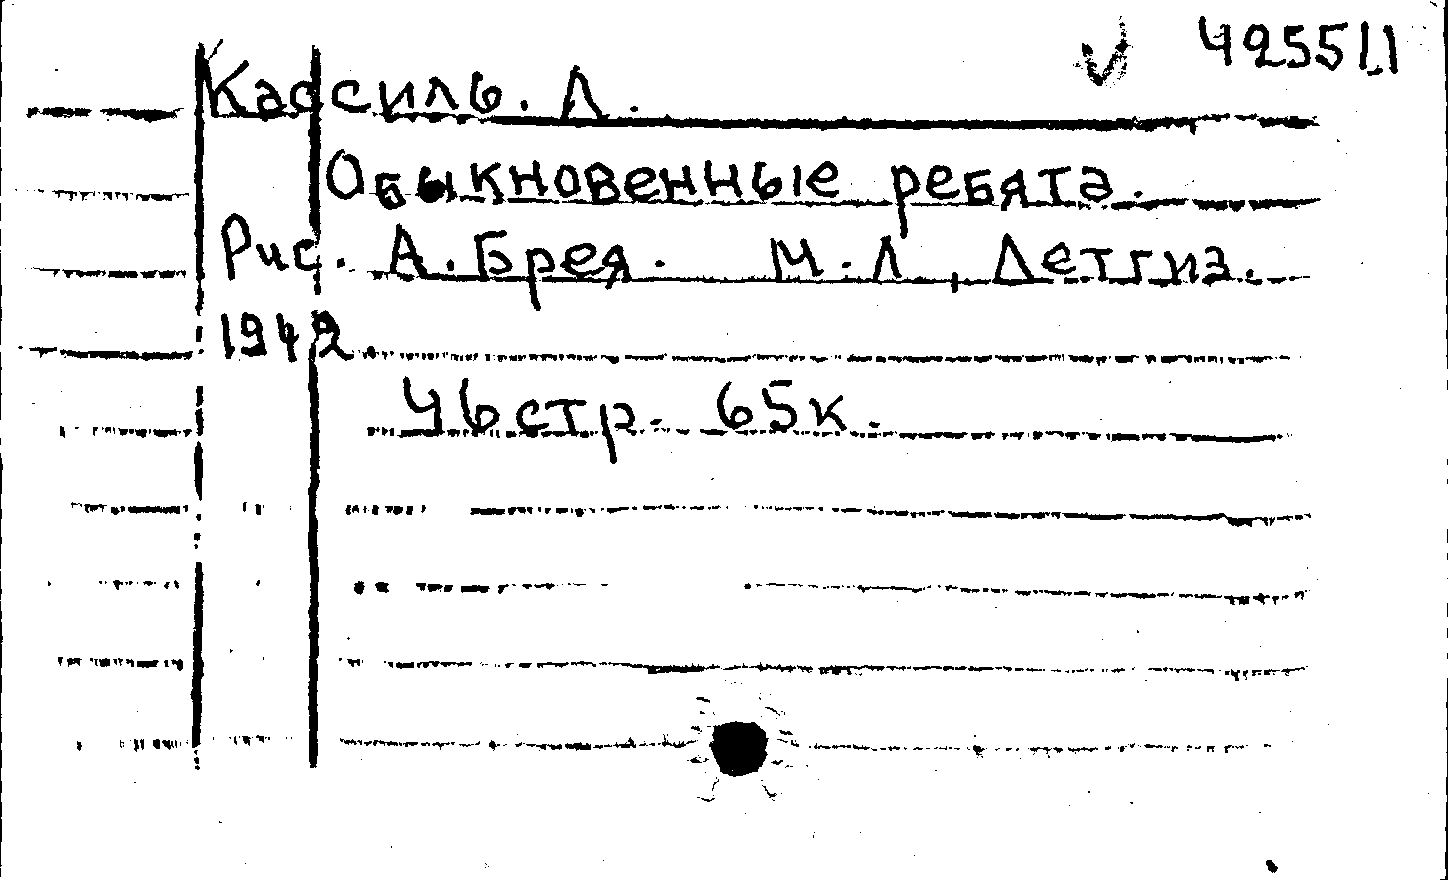 425511
Кассиль. Л.
Обыкновенные ребята.
Рис. А. Брея. М.Л, Детгиз.
1942.
46 стр. 65к.